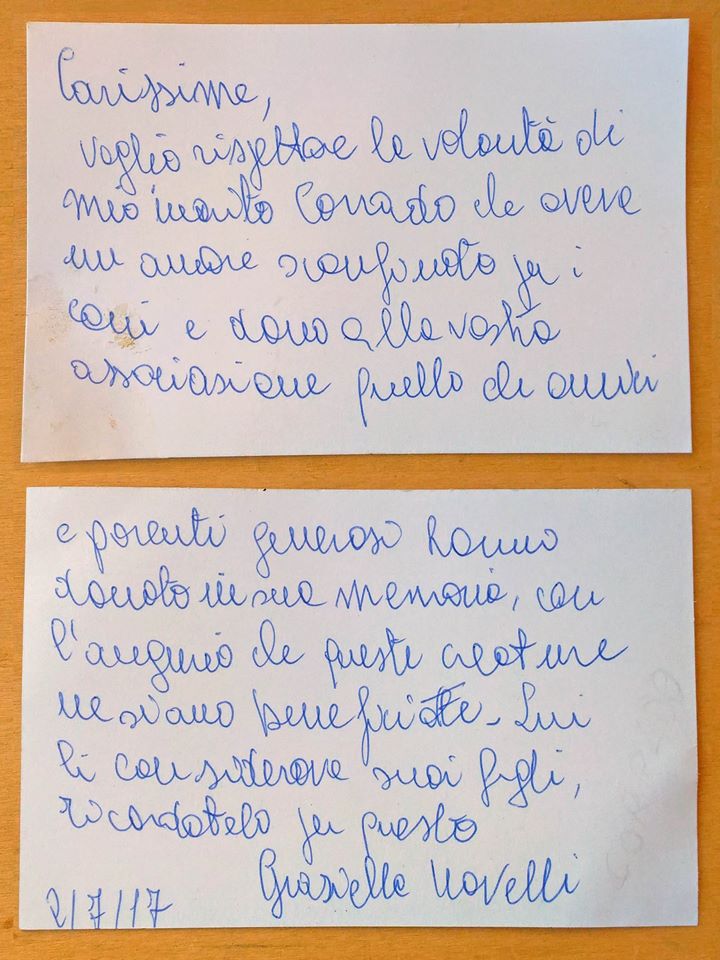 Carissime,
voglio rispettare la volontà di
mio marito Corrado che aveva
un amore sconfinato per i
cani e dono alla vostra
associazione quello che amici
e parenti generosi hanno
donato in sua memoria, con
l'augurio che queste creature
ne siano beneficiate. Lui
li considerava suoi figli,
ricordatelo per questo
Graziella Novelli
2/7/17